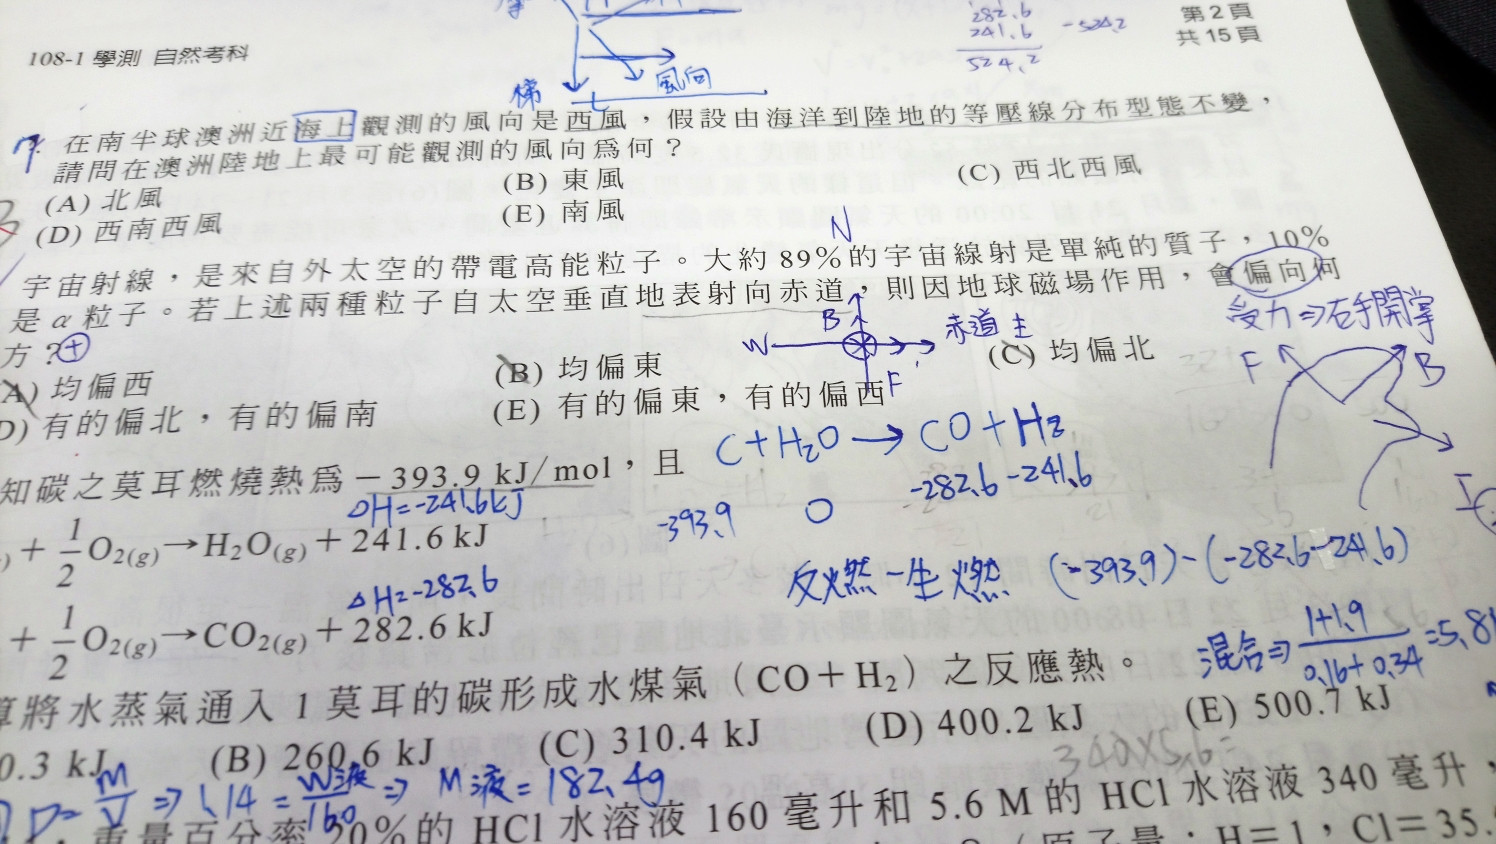 282.6
241.6
524.2
-524.2
第2頁
共15頁
108-1 學測 自然考科
風向
梯
7. 在南半球澳洲近海上觀測的風向是西風，假設由海洋到陸地的等壓線分布型態不變，
請問在澳洲陸地上最可能觀測的風向為何？
(A) 北風 (B) 東風 (C) 西北西風
(D) 西南西風 (E) 南風
N
宇宙射線，是來自外太空的帶電高能粒子。大約89%的宇宙線射是單純的質子，10%
是α粒子。若上述兩種粒子自太空垂直地表射向赤道，則因地球磁場作用，會偏向何
方？
+
B
W
赤道
F
受力⇒右手開掌
F
B
I
A) 均偏西 (B) 均偏東 (C) 均偏北
D) 有的偏北，有的偏南 (E) 有的偏東，有的偏西
C+H₂O→CO+H₂
-393.9 0 -282.6-241.6
知碳之莫耳燃燒熱為－393.9 kJ/mol，且
ΔH=-241.6kJ
) + 1/2 O2(g)→H2O(g)+241.6 kJ
反燃-生燃 (-393.9)-(-282.6-241.6)
ΔH=-282.6
+ 1/2 O2(g)→CO2(g)+282.6 kJ
混合⇒ 1+1.9/0.16+0.34 =5.8
算將水蒸氣通入1莫耳的碳形成水煤氣（CO＋H2）之反應熱。
0.3 kJ (B) 260.6 kJ (C) 310.4 kJ (D) 400.2 kJ (E) 500.7 kJ
340×5.6=
D=M/V ⇒ 1.14=W液/160 ⇒ M液=182.4g
重量百分率20%的 HCl 水溶液 160 毫升和 5.6 M 的 HCl 水溶液 340 毫升，
（原子量：H＝1，Cl＝35.